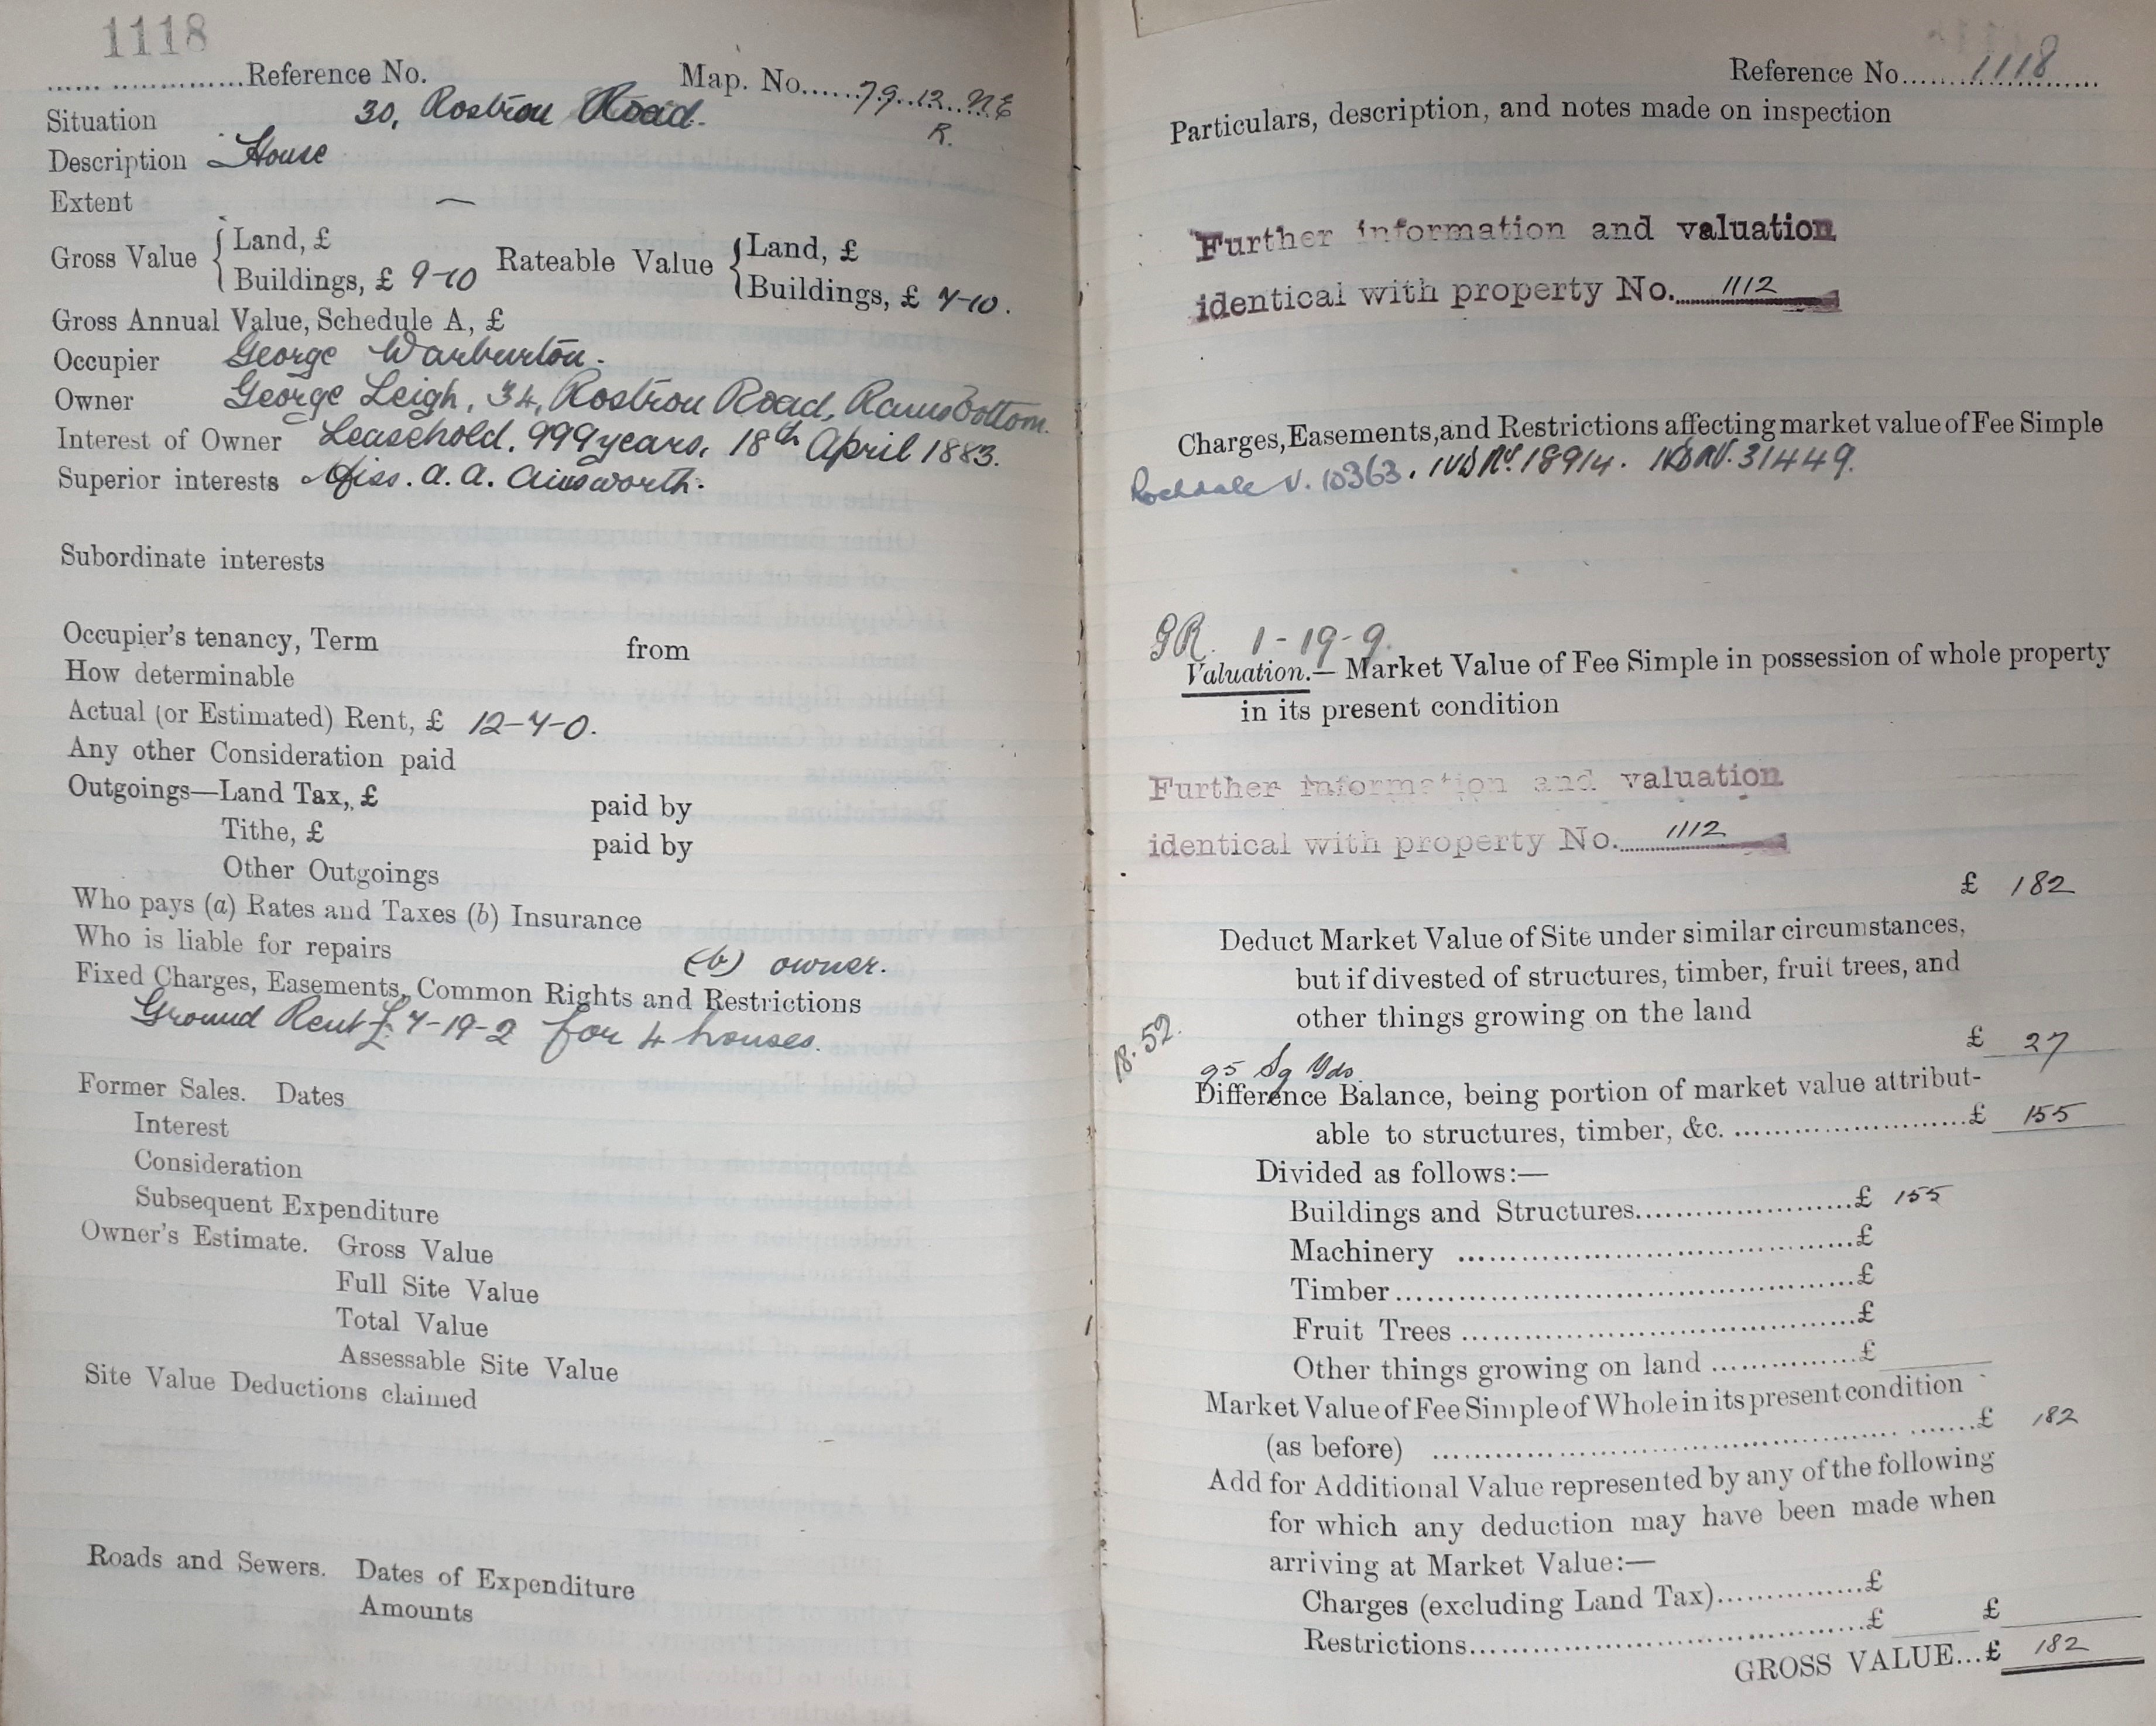 1118
.......................Reference No. Map. No......79..12..N.E
R.
Situation 30, Rostron Road.
Description House
Extent —
Gross Value { Land, £ Rateable Value { Land, £
Buildings, £ 9-10 Buildings, £ 7-10.
Gross Annual Value, Schedule A, £
Occupier George Warburton.
Owner George Leigh, 34, Rostron Road, Ramsbottom.
Interest of Owner Leasehold. 999 years, 18th April 1883.
Superior interests Miss. A. A. Ainsworth.
Subordinate interests
Occupier's tenancy, Term from
How determinable
Actual (or Estimated) Rent, £ 12-7-0.
Any other Consideration paid
Outgoings—Land Tax, £ paid by
Tithe, £ paid by
Other Outgoings
Who pays (a) Rates and Taxes (b) Insurance
Who is liable for repairs (b) owner.
Fixed Charges, Easements, Common Rights and Restrictions
Ground Rent £7-19-2 for 4 houses.
Former Sales. Dates
Interest
Consideration
Subsequent Expenditure
Owner's Estimate. Gross Value
Full Site Value
Total Value
Assessable Site Value
Site Value Deductions claimed
Roads and Sewers. Dates of Expenditure
Amounts
Reference No.......1118.......
Particulars, description, and notes made on inspection
Further information and valuation
identical with property No. 1112
Charges, Easements, and Restrictions affecting market value of Fee Simple
Rochdale V. 10363. 18914. 31449.
GR. 1-19-9.
Valuation.— Market Value of Fee Simple in possession of whole property
in its present condition
Further information and valuation
identical with property No. 1112
£ 182
Deduct Market Value of Site under similar circumstances,
but if divested of structures, timber, fruit trees, and
other things growing on the land
£ 27
18.52.
95 Sq Yds
Difference Balance, being portion of market value attribut-
able to structures, timber, &c. ........................£ 155
Divided as follows:—
Buildings and Structures........................£ 155
Machinery ........................£
Timber........................£
Fruit Trees ........................£
Other things growing on land ...............£
Market Value of Fee Simple of Whole in its present condition
(as before) ........................£ 182
Add for Additional Value represented by any of the following
for which any deduction may have been made when
arriving at Market Value:—
Charges (excluding Land Tax)...............£
Restrictions........................£ £
GROSS VALUE...£ 182